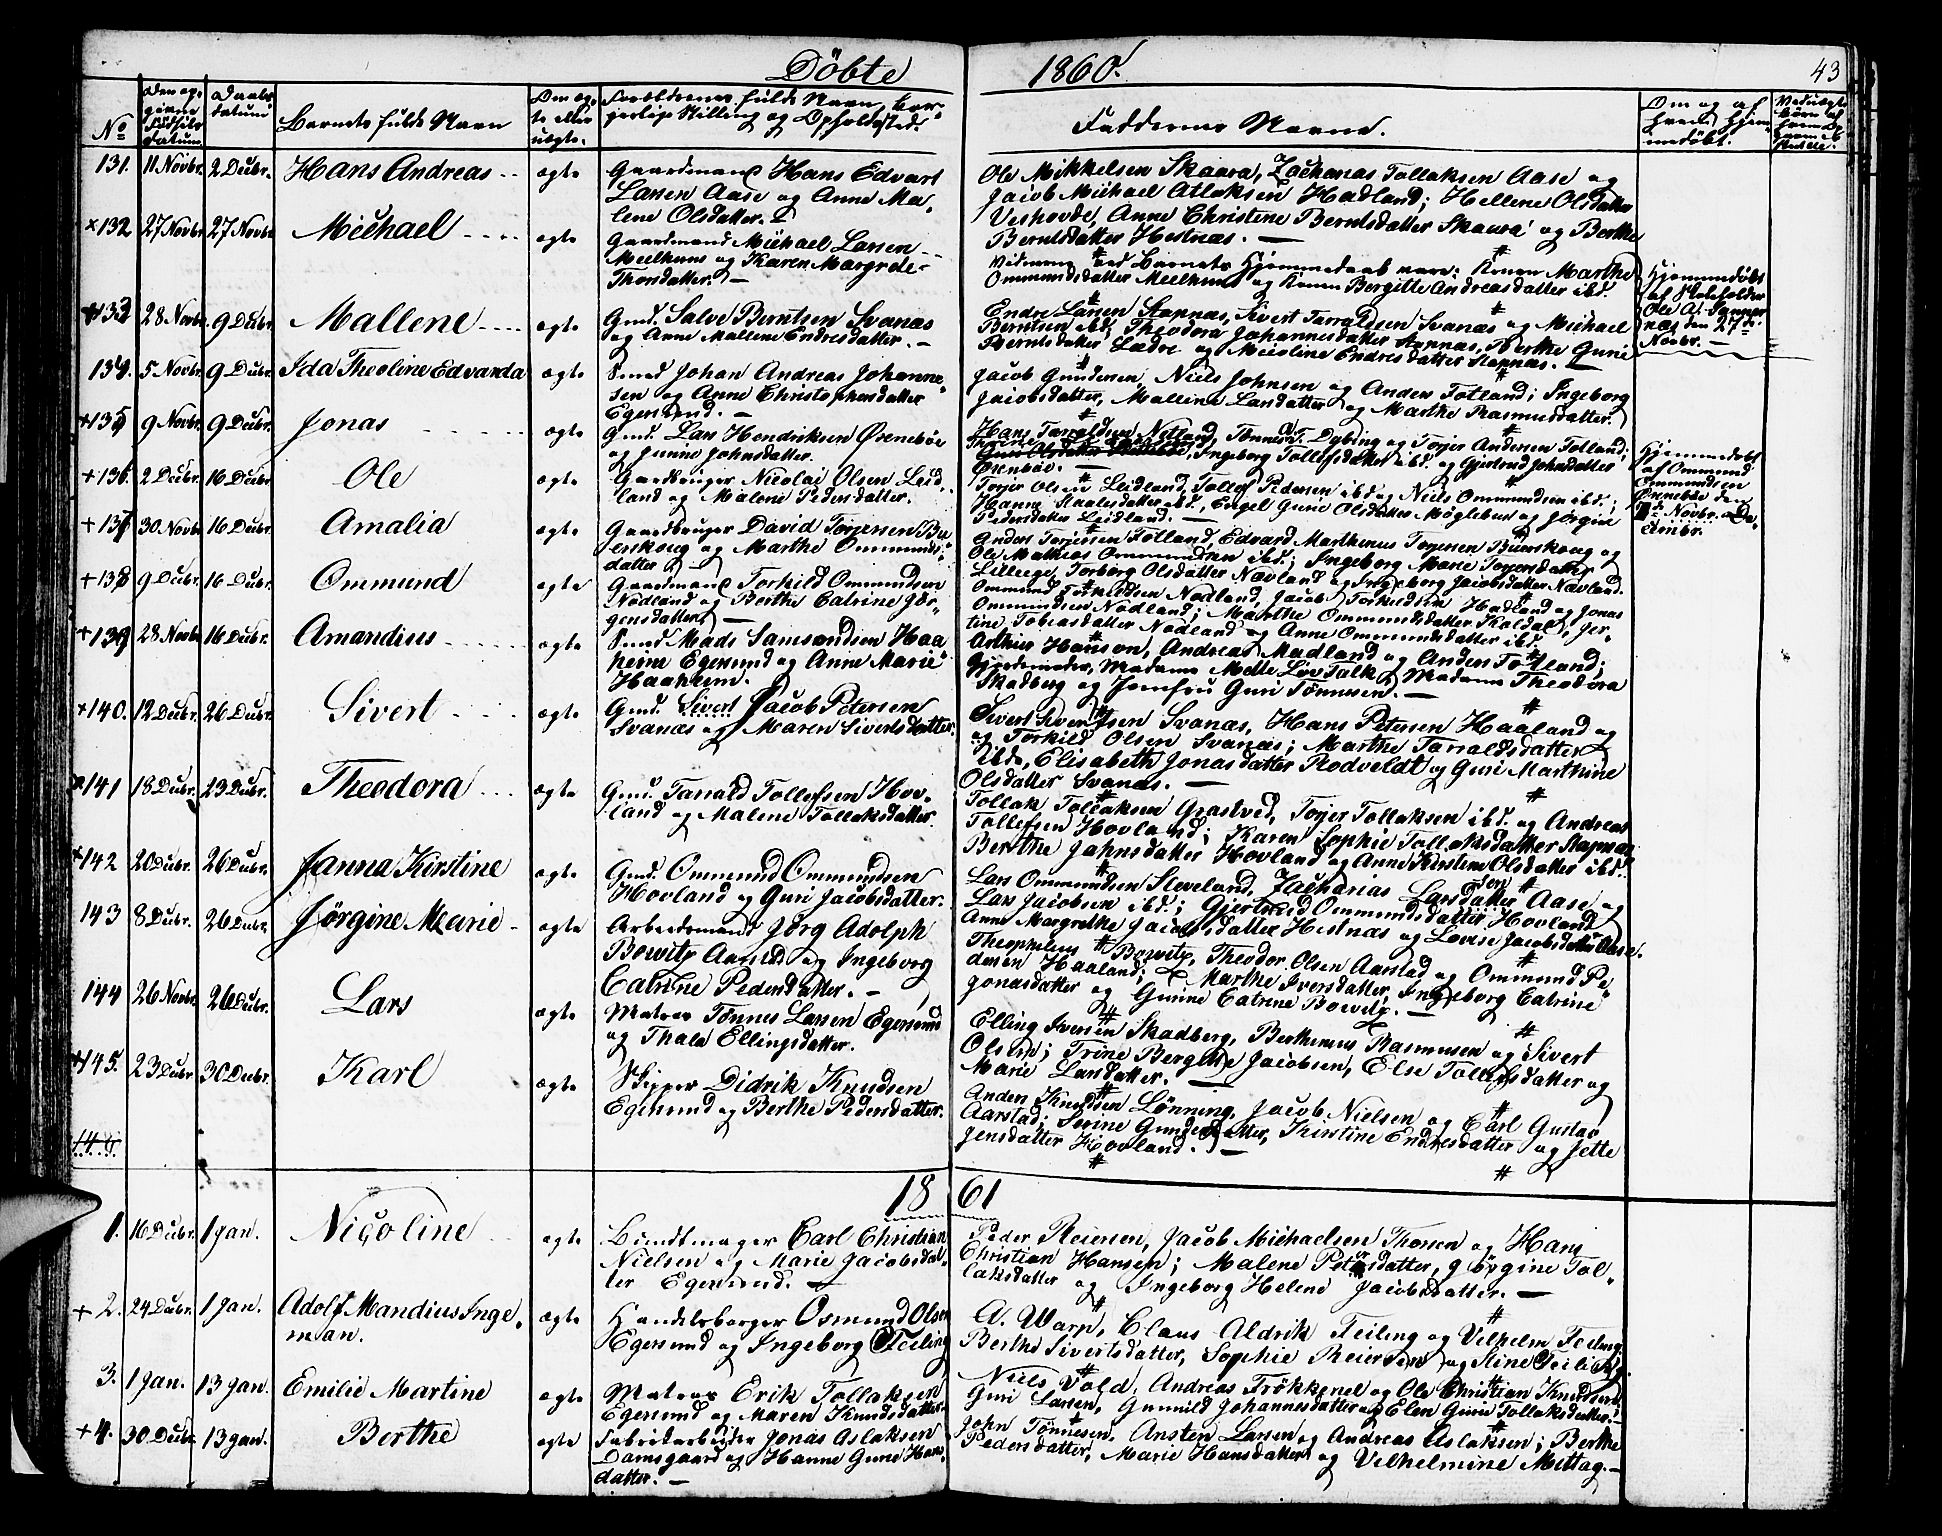 Döbte 1860.
43
No
Den op-
givne
Födsels
datum
Daabs
datum
Barnets fulde Navn
Om æg-
te eller
uægte.
Forældrenes fulde Navn, bor-
gerlige Stilling og Opholdssted.
Faddernes Navne.
Om og af
hvem hjem-
medöbt.
131. 11 Novbr. 2 Decbr. Hans Andreas ægte
Gaardmand Hans Edvart
Larsen Aase og Anne Ma-
lene Olsdatter.
Ole Mikkelsen Skaara, Zacharias Tollaksen Aase og
Jacob Michael Atlaksen Hadland; Hellene Olsdatter
Veshovde, Anne Christine Berntsdatter Skaara og Berthe
Berntsdatter Hestnæs. —
×132 27 Novbr 27 Novbr Michael ægte
Gaardmand Michael Larsen
Meelhuus og Karen Margrete
Thorsdatter. —
Vidnerne ved Barnets Hjemmedaab vare: Konen Marthe
Ommundsdatter Meelhuus og Konen Bergitte Andreasdatter ibd.
Hjemmedöbt
af Skoleholder
Ole A.
næs den 27de
Novbr. —
+133 28 Novbr. 9 Decbr. Mallene ægte
Gmd. Salve Berntsen Svanæs
og Anne Malene Endresdatter. —
Endre Larsen Stapnæs, Sivert Tarraldsen Svanæs og Michael
Berntsen ibd; Theodora Johannesdatter Stapnæs, Berthe Gurie
Berntsdatter Lædre og Meoline Endresdatter Stapnæs. —
134. 5 Novbr. 9 Decbr. Ida Theoline Edvarda ægte
Smed Johan Andreas Johanne-
sen og Anne Christophersdatter
Egersund. —
Jacob Gundersen, Niels Johnsen og Anders Fotland; Ingeborg
Jacobsdatter, Malline Larsdatter og Marthe Rasmusdatter.
+135 9 Novbr. 9 Decbr. Jonas ægte
Gmd. Lars Hendriksen Ørsneböe
og Gunne Johnsdatter.
Hans Tarraldsen Netland, Tönnes T. Dybing og Torjer Andersen Fotland;
Ingeborg Tollefsdatter ibd. og Gjertrud Johnsdatter
Ørsneböe. —
Hjemmedöbt
af Ommund
Ommundsen
Ørsneböe den
+136 2 Decbr. 16 Decbr Ole ægte
Gaardbruger Nicolai Olsen Leid-
land og Malene Pedersdatter.
Torjer Olsen Leidland, Tollef Pedersen ibd og Niels Ommundsen ibd.;
Hanne Staalesdatter ibd., Engel Gurie Olsdatter Möglebust og Jörgine
Pedersdatter Leidland. —
+137 30 Novbr 16 Decbr. Amalia ægte
Gaardbruger David Torjersen Bu-
erskoug og Marthe Ommunds-
datter —
Anders Torjersen Fotland, Edvard Marthinus Torjersen Buerskoug og
Ole Mathias Ommundsen ibd.; Ingeborg Marie Torjersdatter
Lilleege, Torborg Olsdatter Nævland og Ingeborg Jacobsdatter Nævland.
+138 9 Decbr. 16 Decbr. Ommund ægte
Gaardmand Torkild Ommundsen
Nodland og Berthe Catrine Jör-
gensdatter —
Ommund Torkildsen Nodland, Jacob Torkildsen Hadland og Jonas
Ommundsen Nodland; Marthe Ommundsdatter Koldal, Jor-
tine Tobiasdatter Nodland og Anne Ommundsdatter ibd.
+139 28 Novbr 16 Decbr. Amandius ægte
Smed Mads Samsondsen Haa-
heim Egersund og Anne Marie
Haaheim.
Arthur Hanson, Andreas Madland og Anders Fotland;
Gjordemoder, Madame Mette Lov Falk, Madame Theodora
Skadberg og Jomfru Guri Tönnesen. —
+140. 12 Decbr 26 Decbr. Sivert ægte
Gmd. Sivert Jacob Petersen
Svanæs og Maren Sivertsdatter.
Sivert Sivertsen Svanæs, Hans Petersen Haaland og
og Torkild Olsen Svanæs; Marthe Tarraldsdatter
ibd, Elisabeth Jonasdatter Rodveldt og Guri Marthine
Olsdatter Svanæs. —
×141 18 Decbr. 23 Decbr. Theodora ægte
Gmd. Tarrald Tollefsen Hov-
land og Malene Tollaksdatter.
Tollak Tollaksen Grastved, Torjer Tollaksen ibd. og Andreas
Tollefsen Hovland; Karen Sophie Tollaksdatter Stapnæs
Berthe Jahnsdatter Hovland og Anne Kirstine Olsdatter ibd.
+142 20 Decbr. 26 Decbr. Janna Kirstine ægte
Gmd. Ommund Ommundsen
Hovland og Guri Jacobsdatter.
Lars Ommundsen Sleveland, Zacharias Larsen Aase og
Lars Jacobsen ibd.; Gjertrud Ommundsdatter Hovland
Anne Margrethe Jacobsdatter Hestnæs og Lovise Jacobsdatter Aase.
143 8 Decbr. 26 Decbr. Jørgine Marie ægte
Arbeidsmand Jörg Adolph
Bowitz Aarstad og Ingeborg
Catrine Pedersdatter. —
Theophilus Bowitz, Theodor Olsen Aarstad og Ommund Pe-
dersen Haaland; Marthe Iversdatter, Ingeborg Catrine
Jonasdatter og Gunne Catrine Bowitz. —
144 26 Novbr. 26 Decbr. Lars ægte
Matros Tönnes Larsen Egersund
og Thala Ellingsdatter.
Elling Iversen Skadberg, Berthinius Rasmusen og Sivert
Olsen; Trine Bergitte Jacobsen, Else Tollefsdatter og
Marie Larsdatter. —
+145. 23 Decbr. 30 Decbr. Karl ægte
Skipper Didrik Knudsen
Egersund og Berthe Pedersdatter.
Anders Knudsen Lönning, Jacob Nielsen og Carl Gustav
Aarstad; Serine Gundersdatter, Kirstine Endresdatter og Jette
Jensdatter Hovland. —
146
1861
1. 16 Decbr. 1 Jan. Nicoline ægte
Bundtmager Carl Christian
Nielsen og Marie Jacobsdat-
ter Egersund. —
Peder Reiersen, Jacob Michaelsen Thorsen og Hans
Christian Hansen; Malene Petersdatter, Jörgine Tol-
laksdatter og Ingeborg Helene Jacobsdatter. —
+2. 24 Decbr. 1 Jan. Adolf Mandius Inge-
man. ægte
Handelsborger Osmund Olsen
Egersund og Ingeborg Feiling
A. Warp, Claus Aldrik Feiling og Vilhelm Feiling
Berthe Sivertsdatter, Sophie Reiersen og Stine Feiling
3. 1 Jan. 13 Jan. Emilie Martine ægte
Matros Erik Tollaksen
Egersund og Maren Knudsdatter.
Niels Vold, Andreas Frökkenel og Ole Christian Knudsen,
Guri Larsen, Gunnild Johannesdatter og Elen Gurie Tollaksdatter.
+4. 30 Decbr 13 Jan. Berthe ægte
Fabrikarbeider Jonas Aslaksen
Damsgaard og Hanne Gurie Hans-
datter. —
John Tönnesen, Ansten Larsen og Andreas Aslaksen; Berthe
Pedersdatter, Marie Hansdatter og Vilhelmine Mittag. —